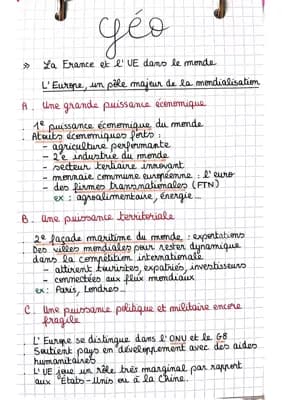 géo
» La France et l'UE dans le monde
L'Europe, un pôle majeur de la mondialisation
A. Une grande puissance économique
1e puissance économique du monde
Atouts économiques forts :
- agriculture performante
- 2e industrie du monde
- secteur tertiaire innovant
- monnaie commune européenne : l'euro
- des firmes transnationales (FTN)
ex : agroalimentaire, énergie...
B. Une puissance territoriale
2e façade maritime du monde : exportations
Des villes mondiales pour rester dynamique
dans la compétition internationale
- attirent touristes, expatriés, investisseurs
- connectées aux flux mondiaux
ex : Paris, Londres...
C. Une puissance politique et militaire encore
fragile
L'Europe se distingue dans l'ONU et le G8
Soutient pays en développement avec des aides
humanitaires
L'UE joue un rôle très marginal par rapport
aux États-Unis ou à la Chine.